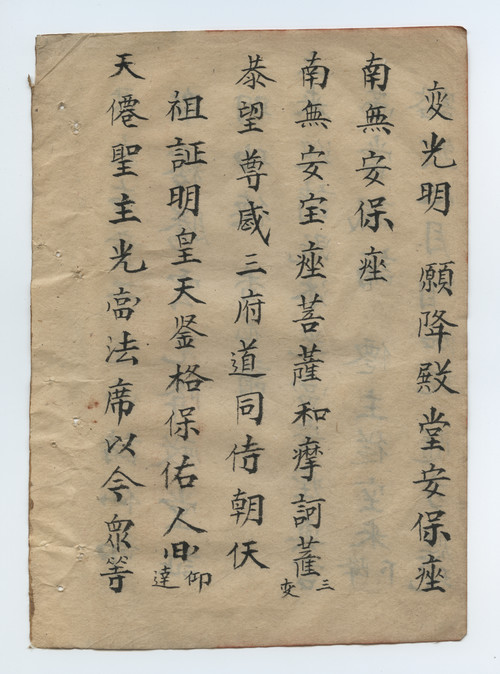 变光明 願降殿堂安保座
南無安保座
南無安宝座菩薩和摩訶薩 三变
恭望尊感三府道同侍朝仸
祖証明皇天鉴格保佑人 仰達
天僊聖主光法席以今眾等